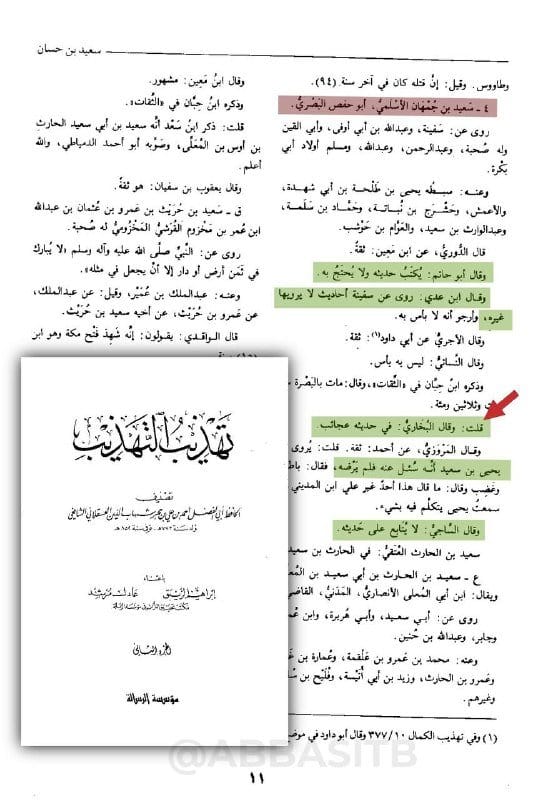 سعيد بن حسان
وطاووس. وقيل: إنّ قتله كان في آخر سنة (٩٤).
٤ ـ سَعِيد بن جُمْهَان الأَسْلَمِيُّ، أبو حفص البَصْرِيُّ.
روى عن: سَفِينة، وعبدالله بن أبي أوفى، وأبي القين
وله صُحبة، وعبدالرحمن، وعبدالله، ومسلم أولاد أبي
بَكْرة.
وعنه: سِبطُه يحيى بن طَلْحة بن أبي شهدة،
والأعمش، وحَشْرَج بن نُباتة، وحَمَّاد بن سَلَمة،
وعبدالوارث بن سعيد، والعَوَّام بن حَوْشب.
قال الدُّوريُّ، عن ابن مَعِين: ثقةٌ.
وقال أبو حاتم: يُكتَبُ حديثه ولا يُحتجُّ به.
وقال ابن عدي: روى عن سفينة أحاديث لا يرويها
غيره، وأرجو أنه لا بأس به.
وقال الآجريُّ عن أبي داود(١): ثقة.
وقال النَّسائيُّ: ليس به بأس.
وذكره ابنُ حِبَّان في «الثِّقات»، وقال: مات بالبَصْرة س
وثلاثين ومئة.
قلت: وقال البُخاريُّ: في حديثه عجائب.
وقال المَرْوَزيُّ، عن أحمد: ثقة. قلت: يُروى
يحيى بن سعيد أنَّه سُئل عنه فلم يَرْضَه. فقال: باط
وغَضِب وقال: ما قال هذا أحدٌ غير علي ابن المديني
سمعتُ يحيى يتكلَّم فيه بشيء.
وقال السَّاجيُّ: لا يُتابع على حديثه.
سعيد بن الحارث العُتَقيُّ: في الحارث بن سعيد
ع ـ سعيد بن الحارث بن أبي سعيد بن المُعَ
ويقال: ابن أبي المعلى الأنصاريُّ، المَدَنيُّ، القاضي
روى عن: أبي سعيد، وأبي هُريرة، وابن عُم
وجابر، وعبدالله بن حُنين.
وعنه: محمد بن عَمرو بن عَلقمة، وعُمارة بن غَ
وعَمرو بن الحارث، وزيد بن أبي أُنَيْسة، وفُلَيْح بن سُ
وغيرهم.
(١) وفي تهذيب الكمال ٣٧٧/١٠ وقال أبو داود في موض
وقال ابنُ مَعِين: مشهور.
وذكره ابنُ حِبَّان في «الثِّقات».
قلت: ذكر ابنُ سَعْد أنَّه سعيد بن أبي سعيد الحارثِ
بن أوس بن المُعَلَّى، وصَوَّبه أبو أحمد الدمياطي، والله
أعلم.
وقال يعقوب بن سفيان: هو ثقةٌ.
ق ـ سَعِيد بن حُرَيْث بن عَمرو بن عُثمان بن عبدالله
ابن عُمر بن مَخْزوم القُرَشيُّ المَخْزوميُّ له صُحبة.
روى عن: النَّبيِّ صلَّى الله عليه وآله وسلم «لا يُبارك
في ثَمَن أرض أو دار إلا أنْ يجعل في مثله».
وعنه: عبدالملك بن عُمَيْر، وقيل: عن عبدالملك،
عن عَمرو بن حُرَيْث، عن أخيه سعيد بن حُرَيْث.
قال الواقدي: يقولون: إنَّه شَهِدَ فَتْح مكة وهو ابن
تهذيب التهذيب
تصنيف
الحافظ أبي الفضل أحمد بن علي بن حجر شهاب الدين العسقلاني الشافعي
ولد سنة ٧٧٣ ـ توفي سنة ٨٥٢ هـ
باعتناء
إبراهيم الزيبق عادل مرشد
مكتب تحقيق التراث في مؤسسة الرسالة
الجزء الثاني
مؤسسة الرسالة
@ABBASITB
١١